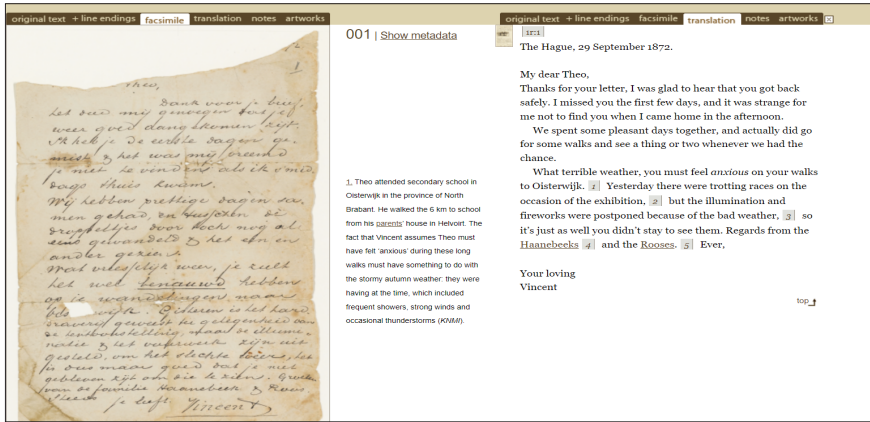 original text + line endings facsimile translation notes artworks
001 | Show metadata
Theo,
Dank voor je brief,
het deed mij genoegen dat je
weer goed aangekomen zijt.
Ik heb je de eerste dagen ge-
mist & het was mij vreemd
je niet te vinden als ik s'mid-
dags thuis kwam.
Wij hebben prettige dagen sa-
men gehad, en tusschen de
droppeltjes door toch nog al
eens gewandeld & het een en
ander gezien.
Wat vreeslijk weer, je zult
het wel benauwd hebben
op je wandelingen naar
Gisteren is het hard-
draverij geweest ter gelegenheid van
de tentoonstelling, maar de illumi-
natie & het vuurwerk zijn uit
gesteld, om het slechte weer, het
is dus maar goed dat je niet
gebleven zijt om die te zien. Groeten
van de familie Haanebeek & Roos
Steeds je liefh.
Vincent
1. Theo attended secondary school in
Oisterwijk in the province of North
Brabant. He walked the 6 km to school
from his parents' house in Helvoirt. The
fact that Vincent assumes Theo must
have felt 'anxious' during these long
walks must have something to do with
the stormy autumn weather: they were
having at the time, which included
frequent showers, strong winds and
occasional thunderstorms (KNMI).
original text + line endings facsimile translation notes artworks
1r:1
The Hague, 29 September 1872.
My dear Theo,
Thanks for your letter, I was glad to hear that you got back
safely. I missed you the first few days, and it was strange for
me not to find you when I came home in the afternoon.
We spent some pleasant days together, and actually did go
for some walks and see a thing or two whenever we had the
chance.
What terrible weather, you must feel anxious on your walks
to Oisterwijk. 1 Yesterday there were trotting races on the
occasion of the exhibition, 2 but the illumination and
fireworks were postponed because of the bad weather, 3 so
it's just as well you didn't stay to see them. Regards from the
Haanebeeks 4 and the Rooses. 5 Ever,
Your loving
Vincent
top